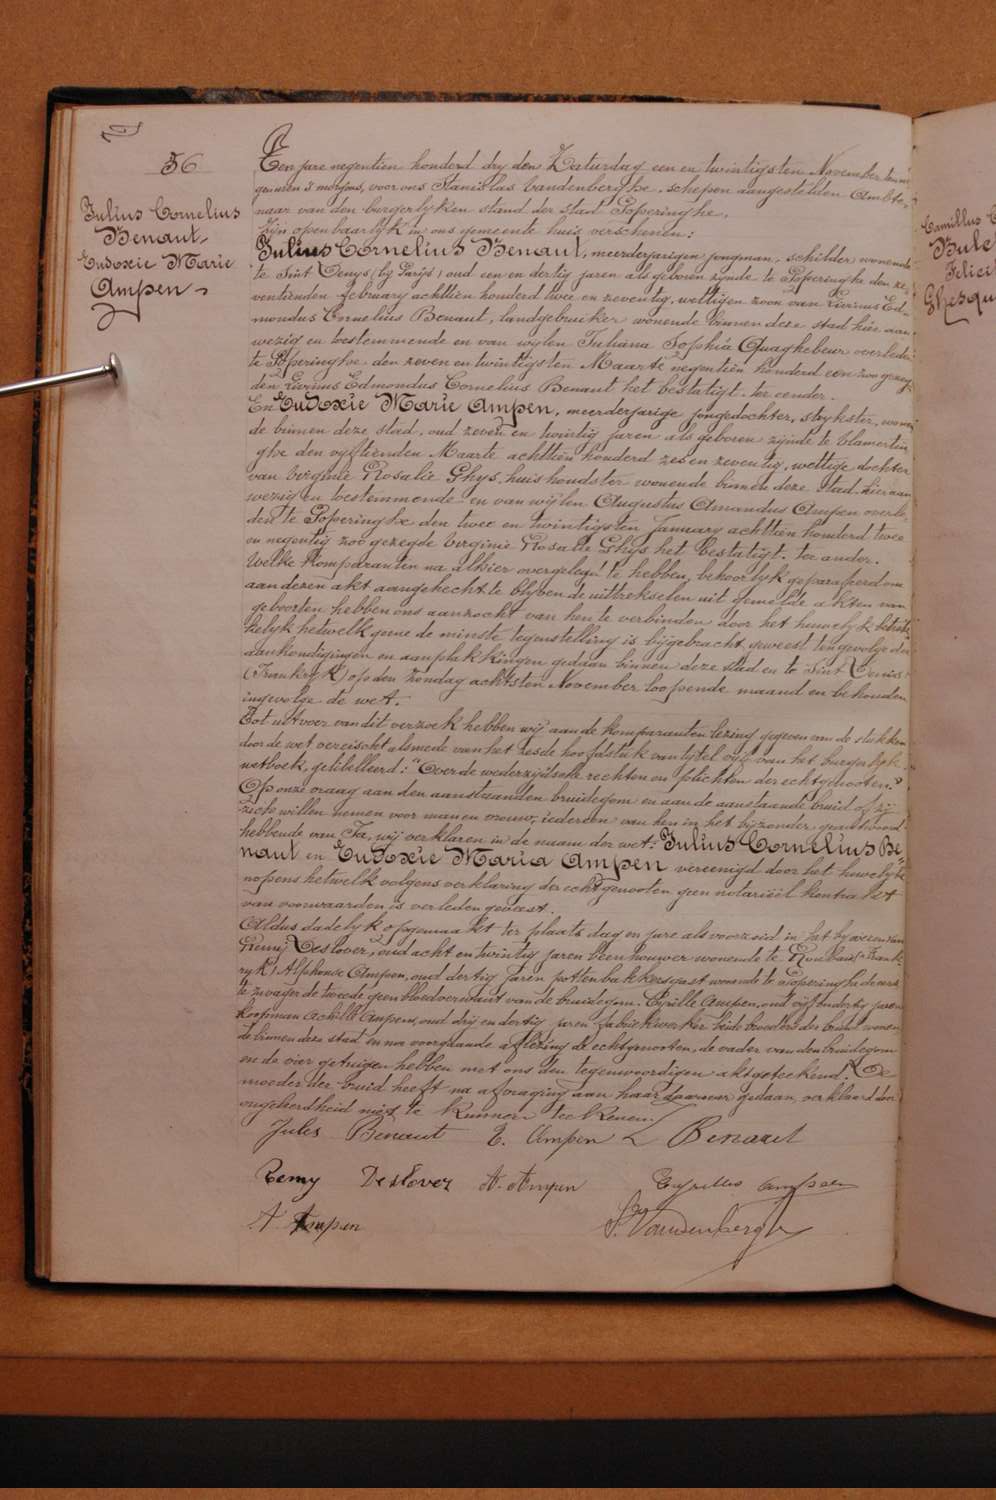 56
Julius Cornelius
Benaut,
Eudoxie Marie
Ampen
Ten jare negentien honderd dry den Zaturdag een en twintigsten November ten
ure 's morgens, voor ons Stanislas Vandenberghe, schepen aangestelden Ambte-
naar van den burgerlyken stand der stad Poperinghe,
Zijn openbaarlyk in ons gemeente huis verschenen:
Julius Cornelius Benaut, meerderjarigen jongman, schilder, wonende
te Sint Denys (by Parijs) oud een en dertig jaren als geboren zynde te Poperinghe den ze-
ventienden February achttien honderd twee en zeventig, wettigen zoon van Livinus Ed-
mondus Cornelius Benaut, landgebruiker wonende binnen deze stad hier aan-
wezig en toestemmende en van wylen Juliana Sophia Quaghebeur overleden
te Poperinghe den zeven en twintigsten Maarte negentien honderd een zoo gezeg-
den Livinus Edmondus Cornelius Benaut het bestatigt. ter eender.
En Eudoxie Marie Ampen, meerderjarige jongedochter, strykster, wonen-
de binnen deze stad, oud zeven en twintig jaren als geboren zijnde te Vlamertin-
ghe den vyftienden Maarte achttien honderd zes en zeventig, wettige dochter
van Virginie Rosalie Ghys, huishoudster wonende binnen deze stad, hier aan-
wezig en toestemmende en van wijlen Augustus Amandus Ampen overle-
den te Poperinghe den twee en twintigsten January achttien honderd twee
en negentig zoo gezegde Virginie Rosalie Ghys het bestatigt. ter ander.
Welke komparanten na alhier overgelegd te hebben, behoorlyk geparapheerd om
aan dezen akt aangehecht te blyven de uittrekselen uit gemelde akten van
geboorten hebben ons aanzocht van hen te verbinden door het huwelyk betrek-
kelyk hetwelk geene de minste tegenstelling is bijgebracht geweest ten gevolge der
aankondigingen en aanplakkingen gedaan binnen deze stad en te Sint Denis
(Frankryk) op den Zondag achtsten November loopende maand en behouden
ingevolge de wet.
Tot uitvoer van dit verzoek hebben wij aan de komparanten lezing gegeven van de stukken
door de wet vereischt alsmede van het zesde hoofdstuk van tytel vyf van het burgerlyk
wetboek, getitelleerd: "Over de wederzijdsche rechten en plichten der echtgenooten."
Op onze vraag aan den aanstaanden bruidegom en aan de aanstaande bruid of zij
zich willen nemen voor man en vrouw, iedereen van hen in het bijzonder geantwoord
hebbende van Ja, wij verklaren in de naam der wet: Julius Cornelius Be-
naut en Eudoxie Maria Ampen vereenigd door het huwelyk
nopens hetwelk volgens verklaring der echtgenooten geen notarieel kontrakt
van voorwaarden is verleden geweest.
Aldus dadelyk opgemaakt ter plaats dag en jare als voorzeid in het bywezen van
Remij Deslover, oud acht en twintig jaren steenhouwer wonende te Roubaix (Frank-
ryk) Alphonse Ampen, oud dertig jaren pottenbakkersgast wonende te Poperinghe de eers-
te zwager de tweede geen bloedverwant van de bruidegom. Cyrille Ampen, oud vijf en dertig jaren
koopman Achille Ampen, oud drij en dertig jaren fabriekwerker beide broeders der bruid wonen-
de binnen deze stad en na voorgaande aflezing de echtgenooten, de vader van den bruidegom
en de vier getuigen hebben met ons den tegenwoordigen akt geteekend. De
moeder der bruid heeft na afvraging aan haar daarover gedaan, verklaard door
ongeleerdheid niet te kunnen teekenen.
Jules Benaut E. Ampen L Benaut
Remy Deslover A. Ampen Cyrillus Ampen
A Ampen S. Vandenberghe
Camillus C
Bule
Felici
Ghesqu